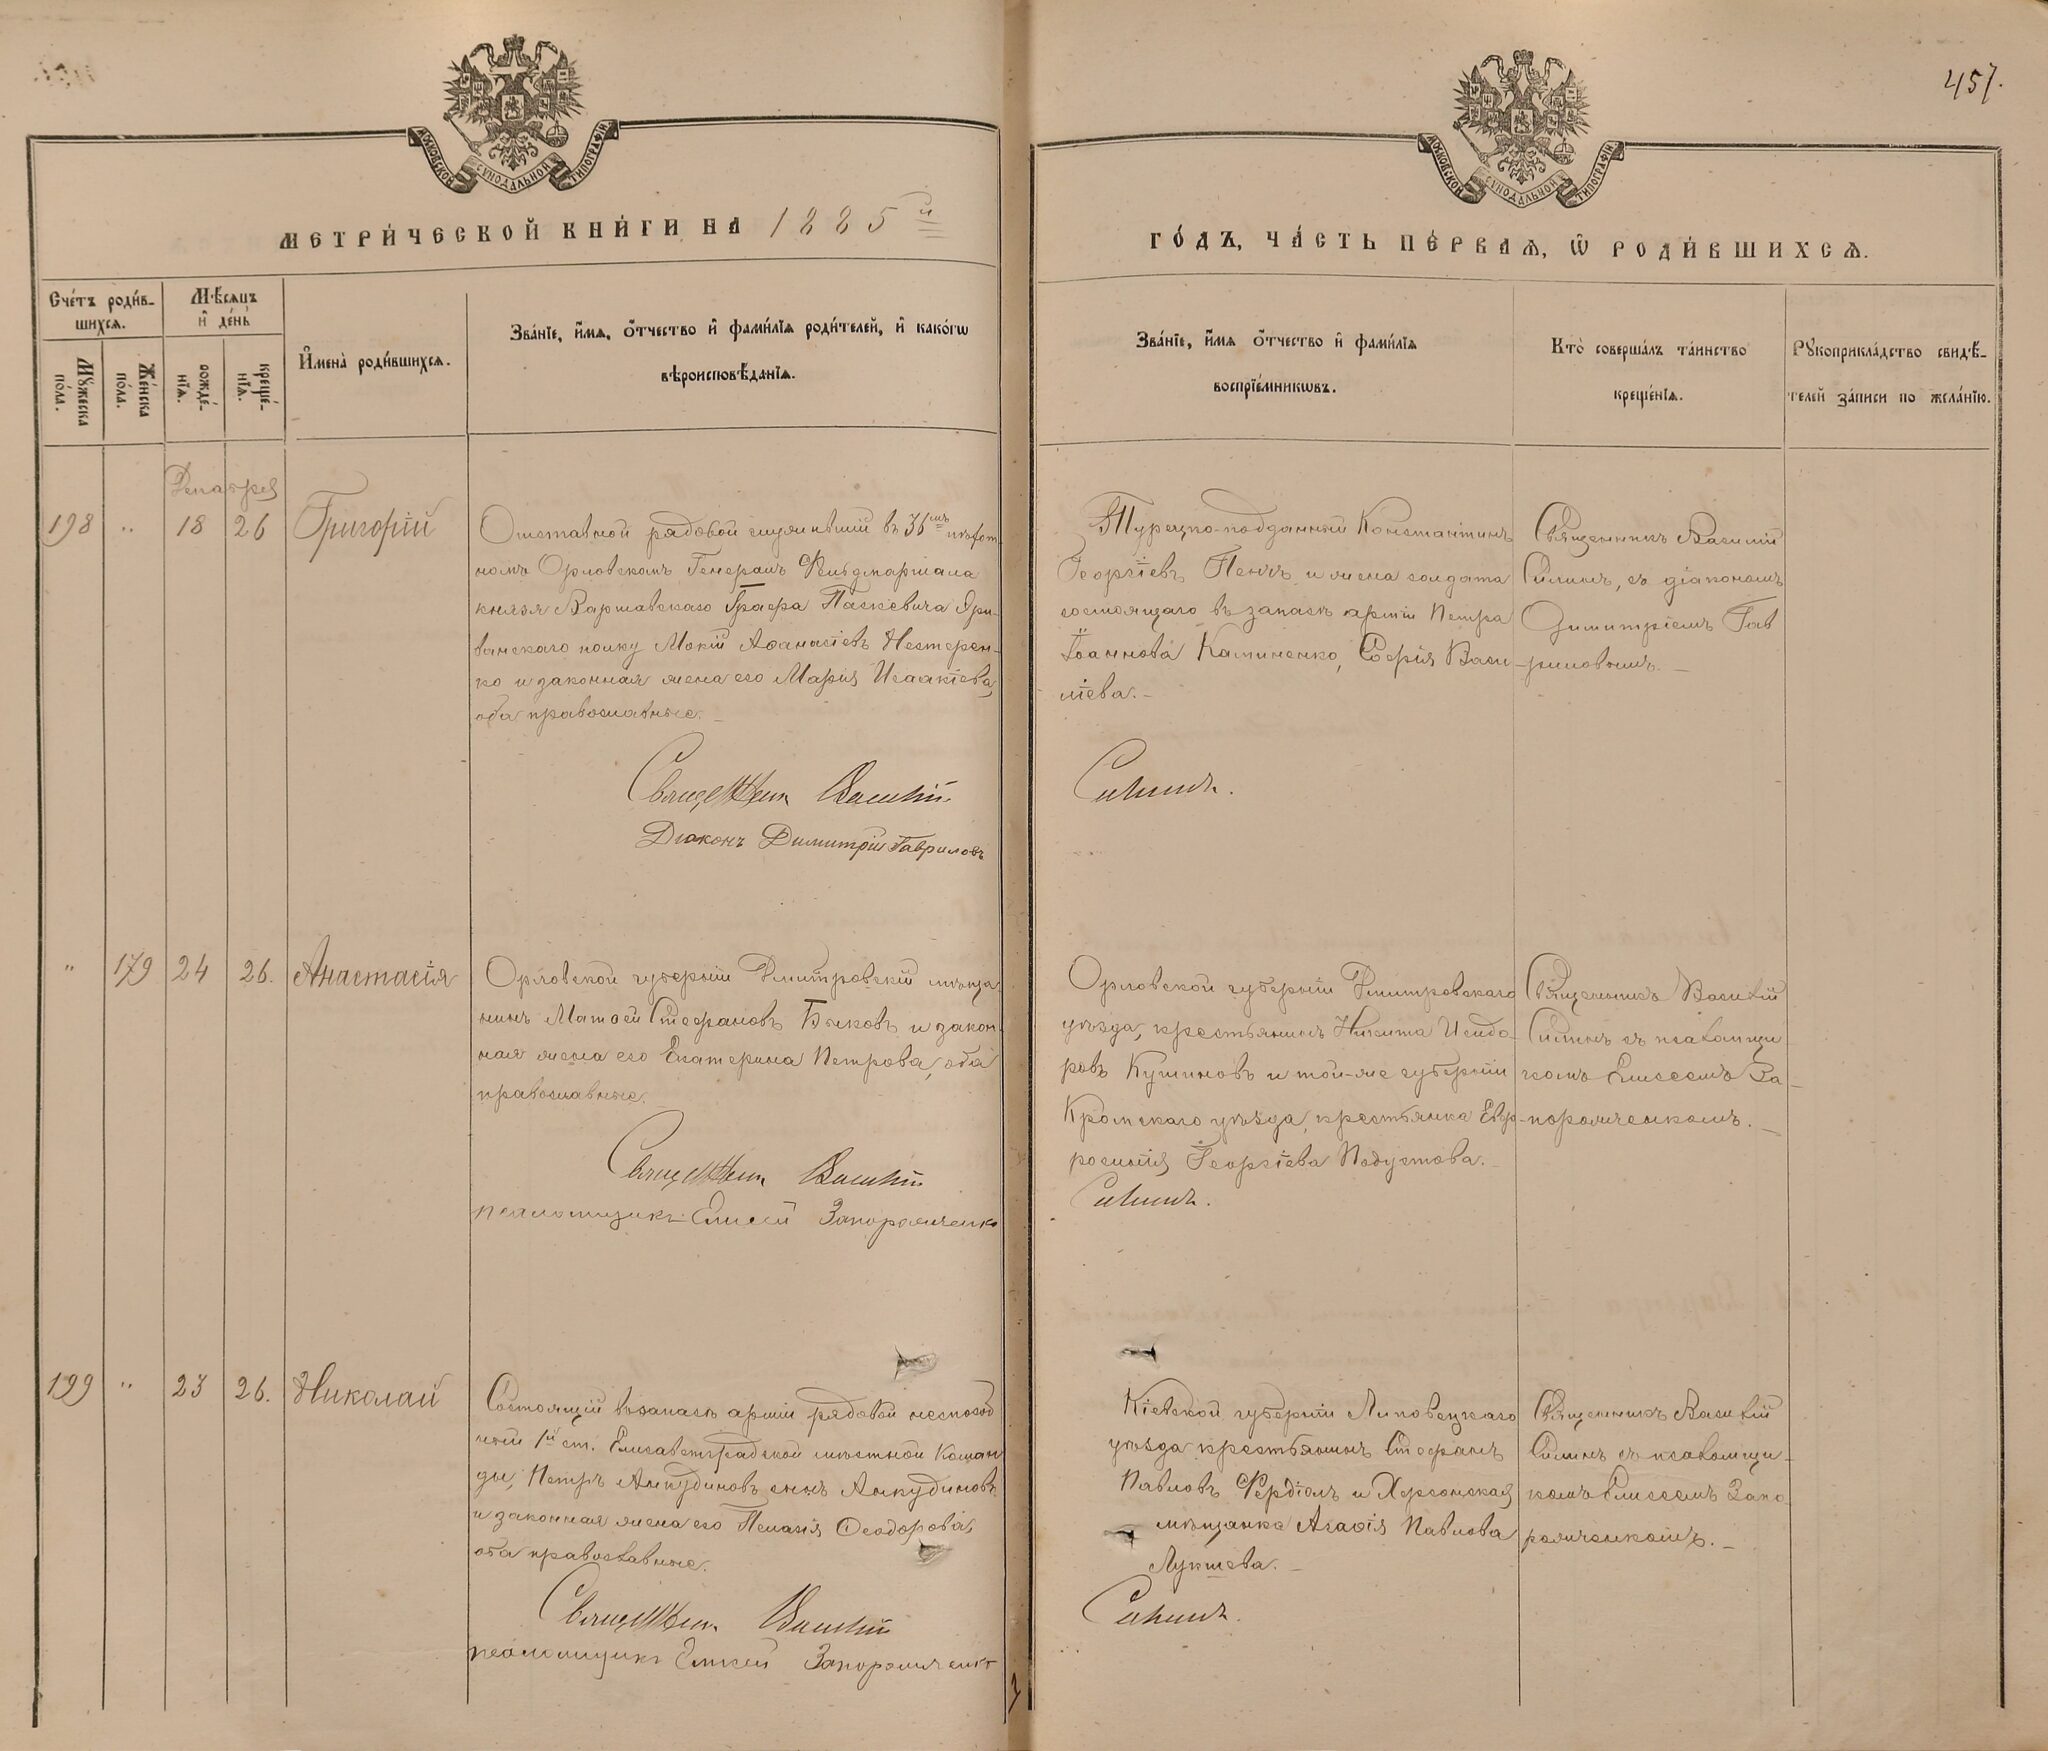 457.
МОСКОВСКОЙ СУНОДАЛЬНОЙ ТИПОГРАФІИ
МОСКОВСКОЙ СУНОДАЛЬНОЙ ТИПОГРАФІИ
МЕТРИ́ЧЕСКОЙ КНИ́ГИ НА 1885й
ГО́ДЪ, ЧА́СТЬ ПЕ́РВАѦ, Ѡ҆ РОДИ́ВШИХСѦ.
Сче́тъ роди́в-
шихсѧ.
Мꙋ́жеска
по́ла.
Же́нска
по́ла.
Мѣ́сѧцъ
и҆ де́нь
рожде́-
нїѧ.
креще́-
нїѧ.
И҆мена̀ роди́вшихсѧ.
Зва́нїе, и҆́мѧ, ѻ҆́тчество и҆ фами́лїѧ роди́телей, и҆ како́гѡ
вѣроисповѣ́данїѧ.
Зва́нїе, и҆́мѧ ѻ҆́тчество и҆ фами́лїѧ
воспрїе́мникѡвъ.
Кто̀ соверша́лъ та́инство
креще́нїѧ.
Рꙋкоприкла́дство свидѣ́-
телей за́писи по жела́нїю.
Декабрь
198 „ 18 26 Григорій
Отставной рядовой служившій въ 36мъ пѣхот
номъ Орловскомъ Генералъ Фельдмаршала
князя Варшавскаго Графа Паскевича Эри-
ванскаго полку Мокій Аѳанасіевъ Нестерен-
ко и законная жена его Марія Исаакіева,
оба православные.
Священникъ Василій
Діаконъ Димитрій Гавриловъ
Турецко-подданный Константинъ
Георгіевъ Пенчъ и жена солдата
состоящаго въ запасѣ арміи Петра
Іоаннова Калиненко, Софія Васи-
ліева.
Силинъ.
Священникъ Василій
Силинъ, съ діакономъ
Димитріемъ Гав
риловымъ.
„ 179 24 26. Анастасія
Орловской губерніи Дмитровскій мѣща
нинъ Матѳей Стефановъ Быковъ и закон
ная жена его Екатерина Петрова, оба
православные.
Священникъ Василій
псаломщикъ Елисей Запорожченко
Орловской губерніи Дмитровскаго
уѣзда, крестьянинъ Никита Исидо-
ровъ Кутиновъ и той-же губерніи
Кромскаго уѣзда, крестьянка Евф-
росинія Георгіева Подустова.
Силинъ.
Священникъ Василій
Силинъ съ псаломщи-
комъ Елисеемъ За-
порожченкомъ.
199 „ 23 26. Николай
Состоящій въ запасѣ арміи рядовой неспособ
ный 1й ст. Елисаветградской мѣстной Коман
ды, Петръ Анкудиновъ сынъ Анкудиновъ
и законная жена его Пелагія Ѳеодорова,
оба православные.
Священникъ Василій
псаломщикъ Елисей Запорожченко
Кіевской губерніи Липовецкаго
уѣзда крестьянинъ Стефанъ
Павловъ Фердіолъ и Херсонская
мѣщанка Агаѳія Павлова
Лукшева.
Силинъ.
Священникъ Василій
Силинъ съ псаломщи-
комъ Елисеемъ Запо-
рожченкомъ.